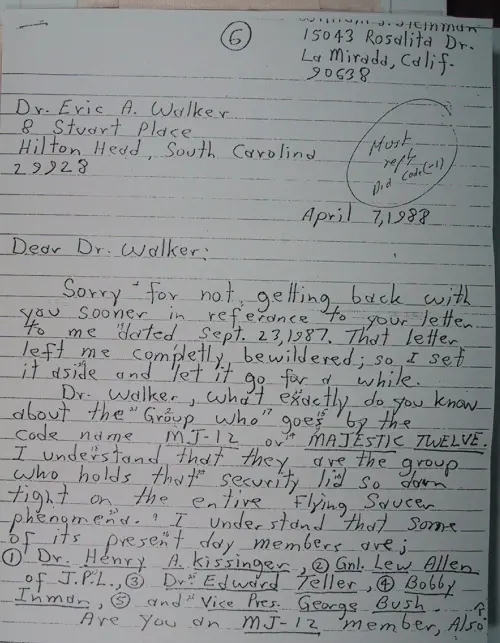 6
15043 Rosalita Dr.
La Mirada, Calif.
90638
Dr. Eric A. Walker
8 Stuart Place
Hilton Head, South Carolina
29928
Must
reply
Did Code(-1)
April 7, 1988
Dear Dr. Walker:
Sorry for not getting back with
you sooner in referance to your letter
to me dated Sept. 23, 1987. That letter
left me completly bewildered; so I set
it aside and let it go for a while.
Dr. Walker, what exactly do you know
about the "Group who" goes by the
code name MJ-12 or MAJESTIC TWELVE.
I understand that they are the group
who holds that security lid so down
tight on the entire Flying Saucer
phenomena. I understand that some
of its present day members are;
① Dr. Henry A. Kissinger, ② Gnl. Lew Allen
of J.P.L., ③ Dr. Edward Teller, ④ Bobby
Inman, ⑤ and Vice Pres. George Bush.
Are you an MJ-12 member, Also